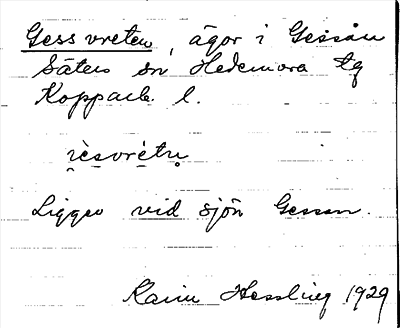 Gessvreten, ägor i Gessån
Säters sn Hedemora tg
Kopparb. l.
Ligger vid sjön Gessen.
Karin Hessling 1929